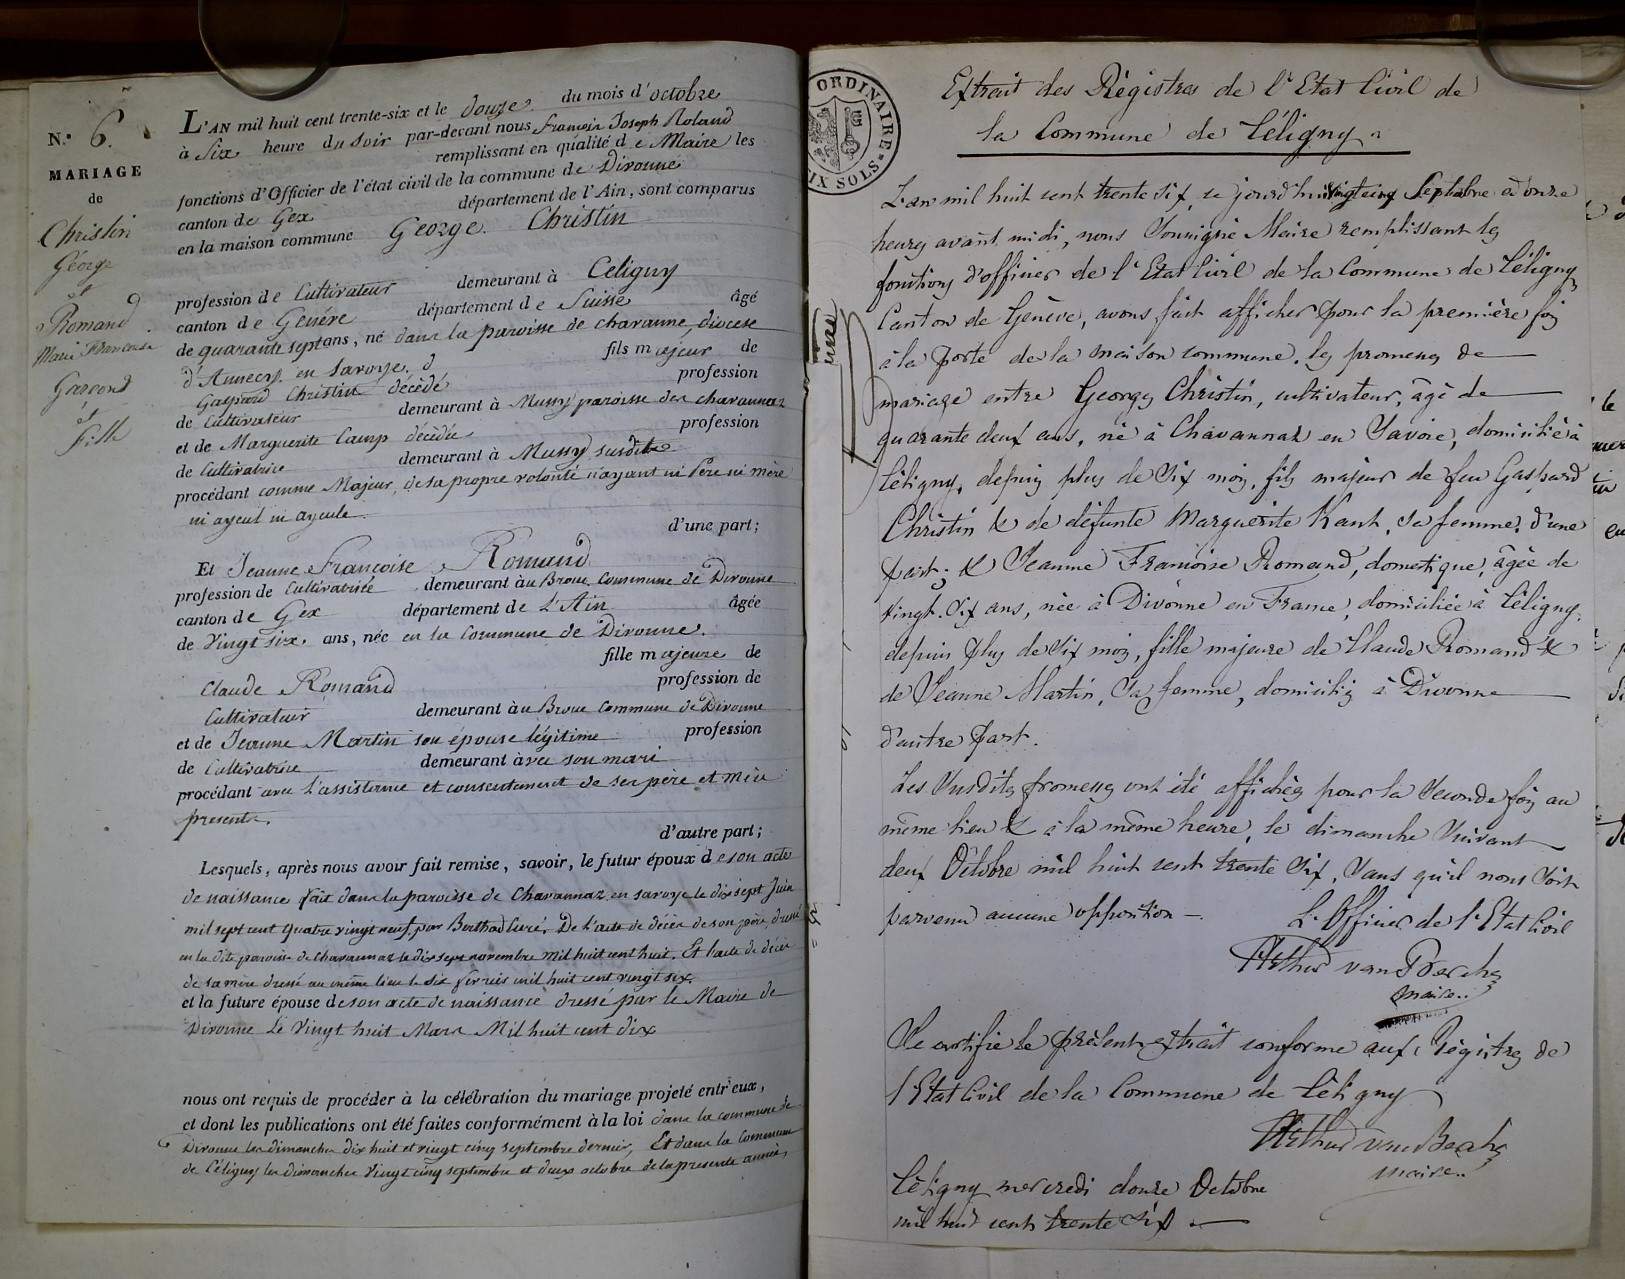 N.° 6.
MARIAGE
de
Christin
George
et
Romand
Marie Francoise
Garcond
et
fille
L'AN mil huit cent trente-six et le douze du mois d'octobre
à Six heure du Soir par-devant nous François Joseph Roland
remplissant en qualité de Maire les
fonctions d'Officier de l'état civil de la commune de Divonne
canton de Gex département de l'Ain, sont comparus
en la maison commune George Christin
profession de Cultivateur demeurant à Céligny
canton de Genéve département de Suisse âgé
de quarante sept ans, né dans la paroisse de chavanne diocese
d'Annecy en Savoye. fils majeur de
Gaspard Christin décédé profession
de Cultivateur demeurant à Mussy paroisse de chavannaz
et de Marguerite Camp décédée profession
de Cultivatrice demeurant à Mussy susdite
procédant comme Majeur, de sa propre volonté n'ayant ni Père ni mère
ni ayeul ni ayeule. d'une part;
Et Jeanne Françoise Romand
profession de Cultivatrice demeurant à Commune de Divonne
canton de Gex département de L'Ain âgée
de Vingt six ans, née en la Commune de Divonne.
fille majeure de
Claude Romand profession de
Cultivateur demeurant à Commune de Divonne
et de Jeanne Martin son épouse légitime profession
de Cultivatrice demeurant avec son mari
procédant avec l'assistance et consentement de ses père et mère
presents. d'autre part;
Lesquels, après nous avoir fait remise, savoir, le futur époux de son acte
de naissance fait dans la paroisse de Chavannaz en savoye le dix sept Juin
mil sept cent quatre vingt neuf, par Berthod Curé, De l'acte de décès de son père, dressé
en la dite paroisse de chavannaz le dix sept novembre mil huit cent huit, Et l'acte de décès
de sa mère dressé au même lieu le six février mil huit cent vingt six.
et la future épouse de son acte de naissance dressé par le Maire de
Divonne Le Vingt huit Mars Mil huit cent dix
nous ont requis de procéder à la célébration du mariage projeté entr'eux,
et dont les publications ont été faites conformément à la loi dans la commune de
Divonne les dimanches dix huit et vingt cinq septembre dernier, Et dans la Commune
de Céligny les dimanches Vingt cinq septembre et deux octobre de la presente année,
ORDINAIRE
SIX SOLS
Extrait des Régistres de l'Etat Civil de
la Commune de Céligny
L'an mil huit cent trente six, ce jourd'hui vingt cinq Septembre à onze
heures avant midi, nous Soussigné Maire remplissant les
fonctions d'officier de l'Etat Civil de la Commune de Céligny,
Canton de Genève, avons fait afficher pour la première fois
à la porte de la maison commune, les promesses de
mariage entre Georges Christin, cultivateur, âgé de
quarante deux ans, né à Chavannaz en Savoie, domicilié à
Céligny, depuis plus de Six mois, fils majeur de feu Gaspard
Christin & de défunte Marguerite Kant, sa femme, d'une
part; & Jeanne Françoise Romand, domestique, âgée de
vingt-Six ans, née à Divonne en France, domiciliée à Céligny,
depuis plus de Six mois, fille majeure de Claude Romand &
de Jeanne Martin, Sa femme, domiciliés à Divonne
d'autre part.
Les Susdites promesses ont été affichées pour la Seconde fois au
même lieu & à la même heure, le dimanche Suivant
deux Octobre mil huit cent trente Six, Sans qu'il nous soit
parvenu aucune opposition. L'Officier de l'Etat Civil
Arthur van Berchem
maire..
Je certifie le présent extrait conforme aux Régistres de
l'Etat Civil de la Commune de Céligny
Arthur van Berchem
maire..
Céligny mercredi douze Octobre
mil huit cent trente Six